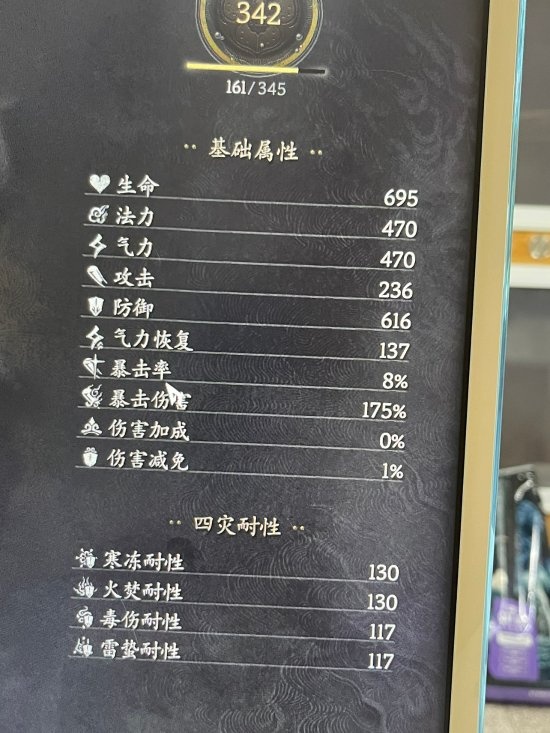 342
161/345
基础属性
生命 695
法力 470
气力 470
攻击 236
防御 616
气力恢复 137
暴击率 8%
暴击伤害 175%
伤害加成 0%
伤害减免 1%
四灾耐性
寒冻耐性 130
火焚耐性 130
毒伤耐性 117
雷蛰耐性 117